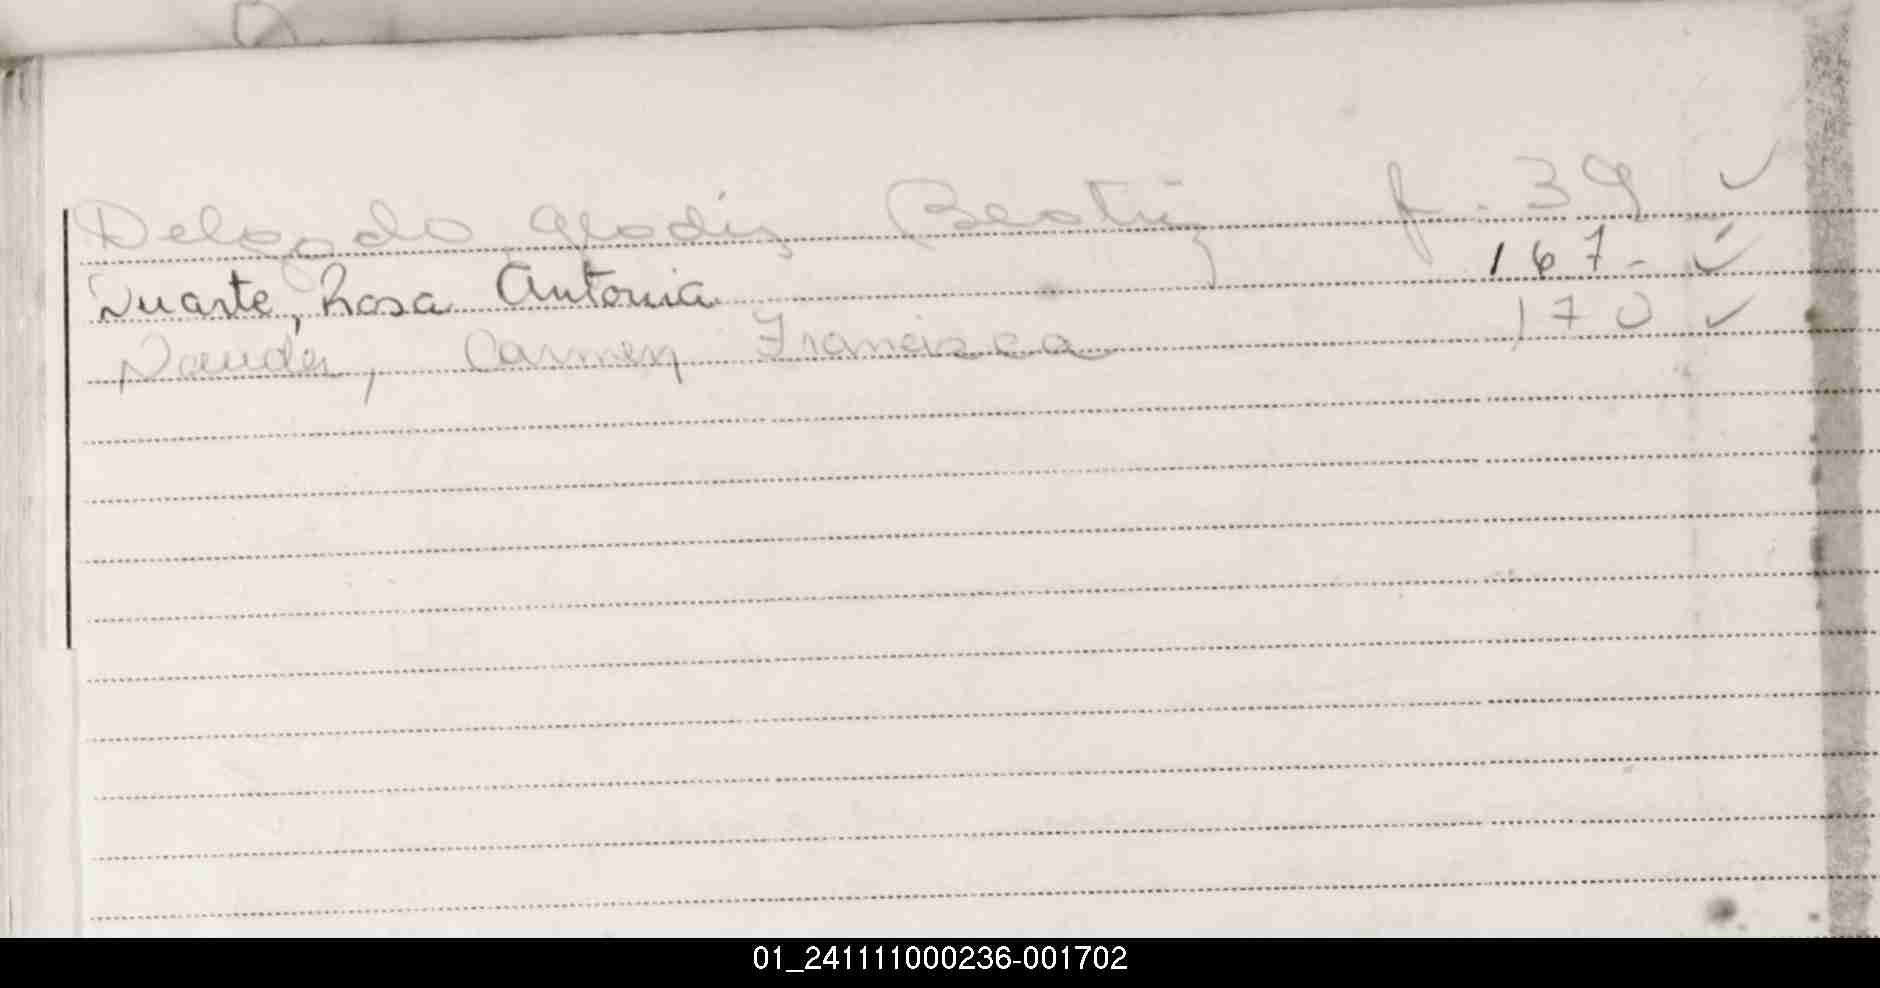 D.
Delgado Gladis Beatriz f. 39 ✓
Duarte, Rosa Antonia 167- ✓
Carmen Francisca 170 ✓
01_241111000236-001702